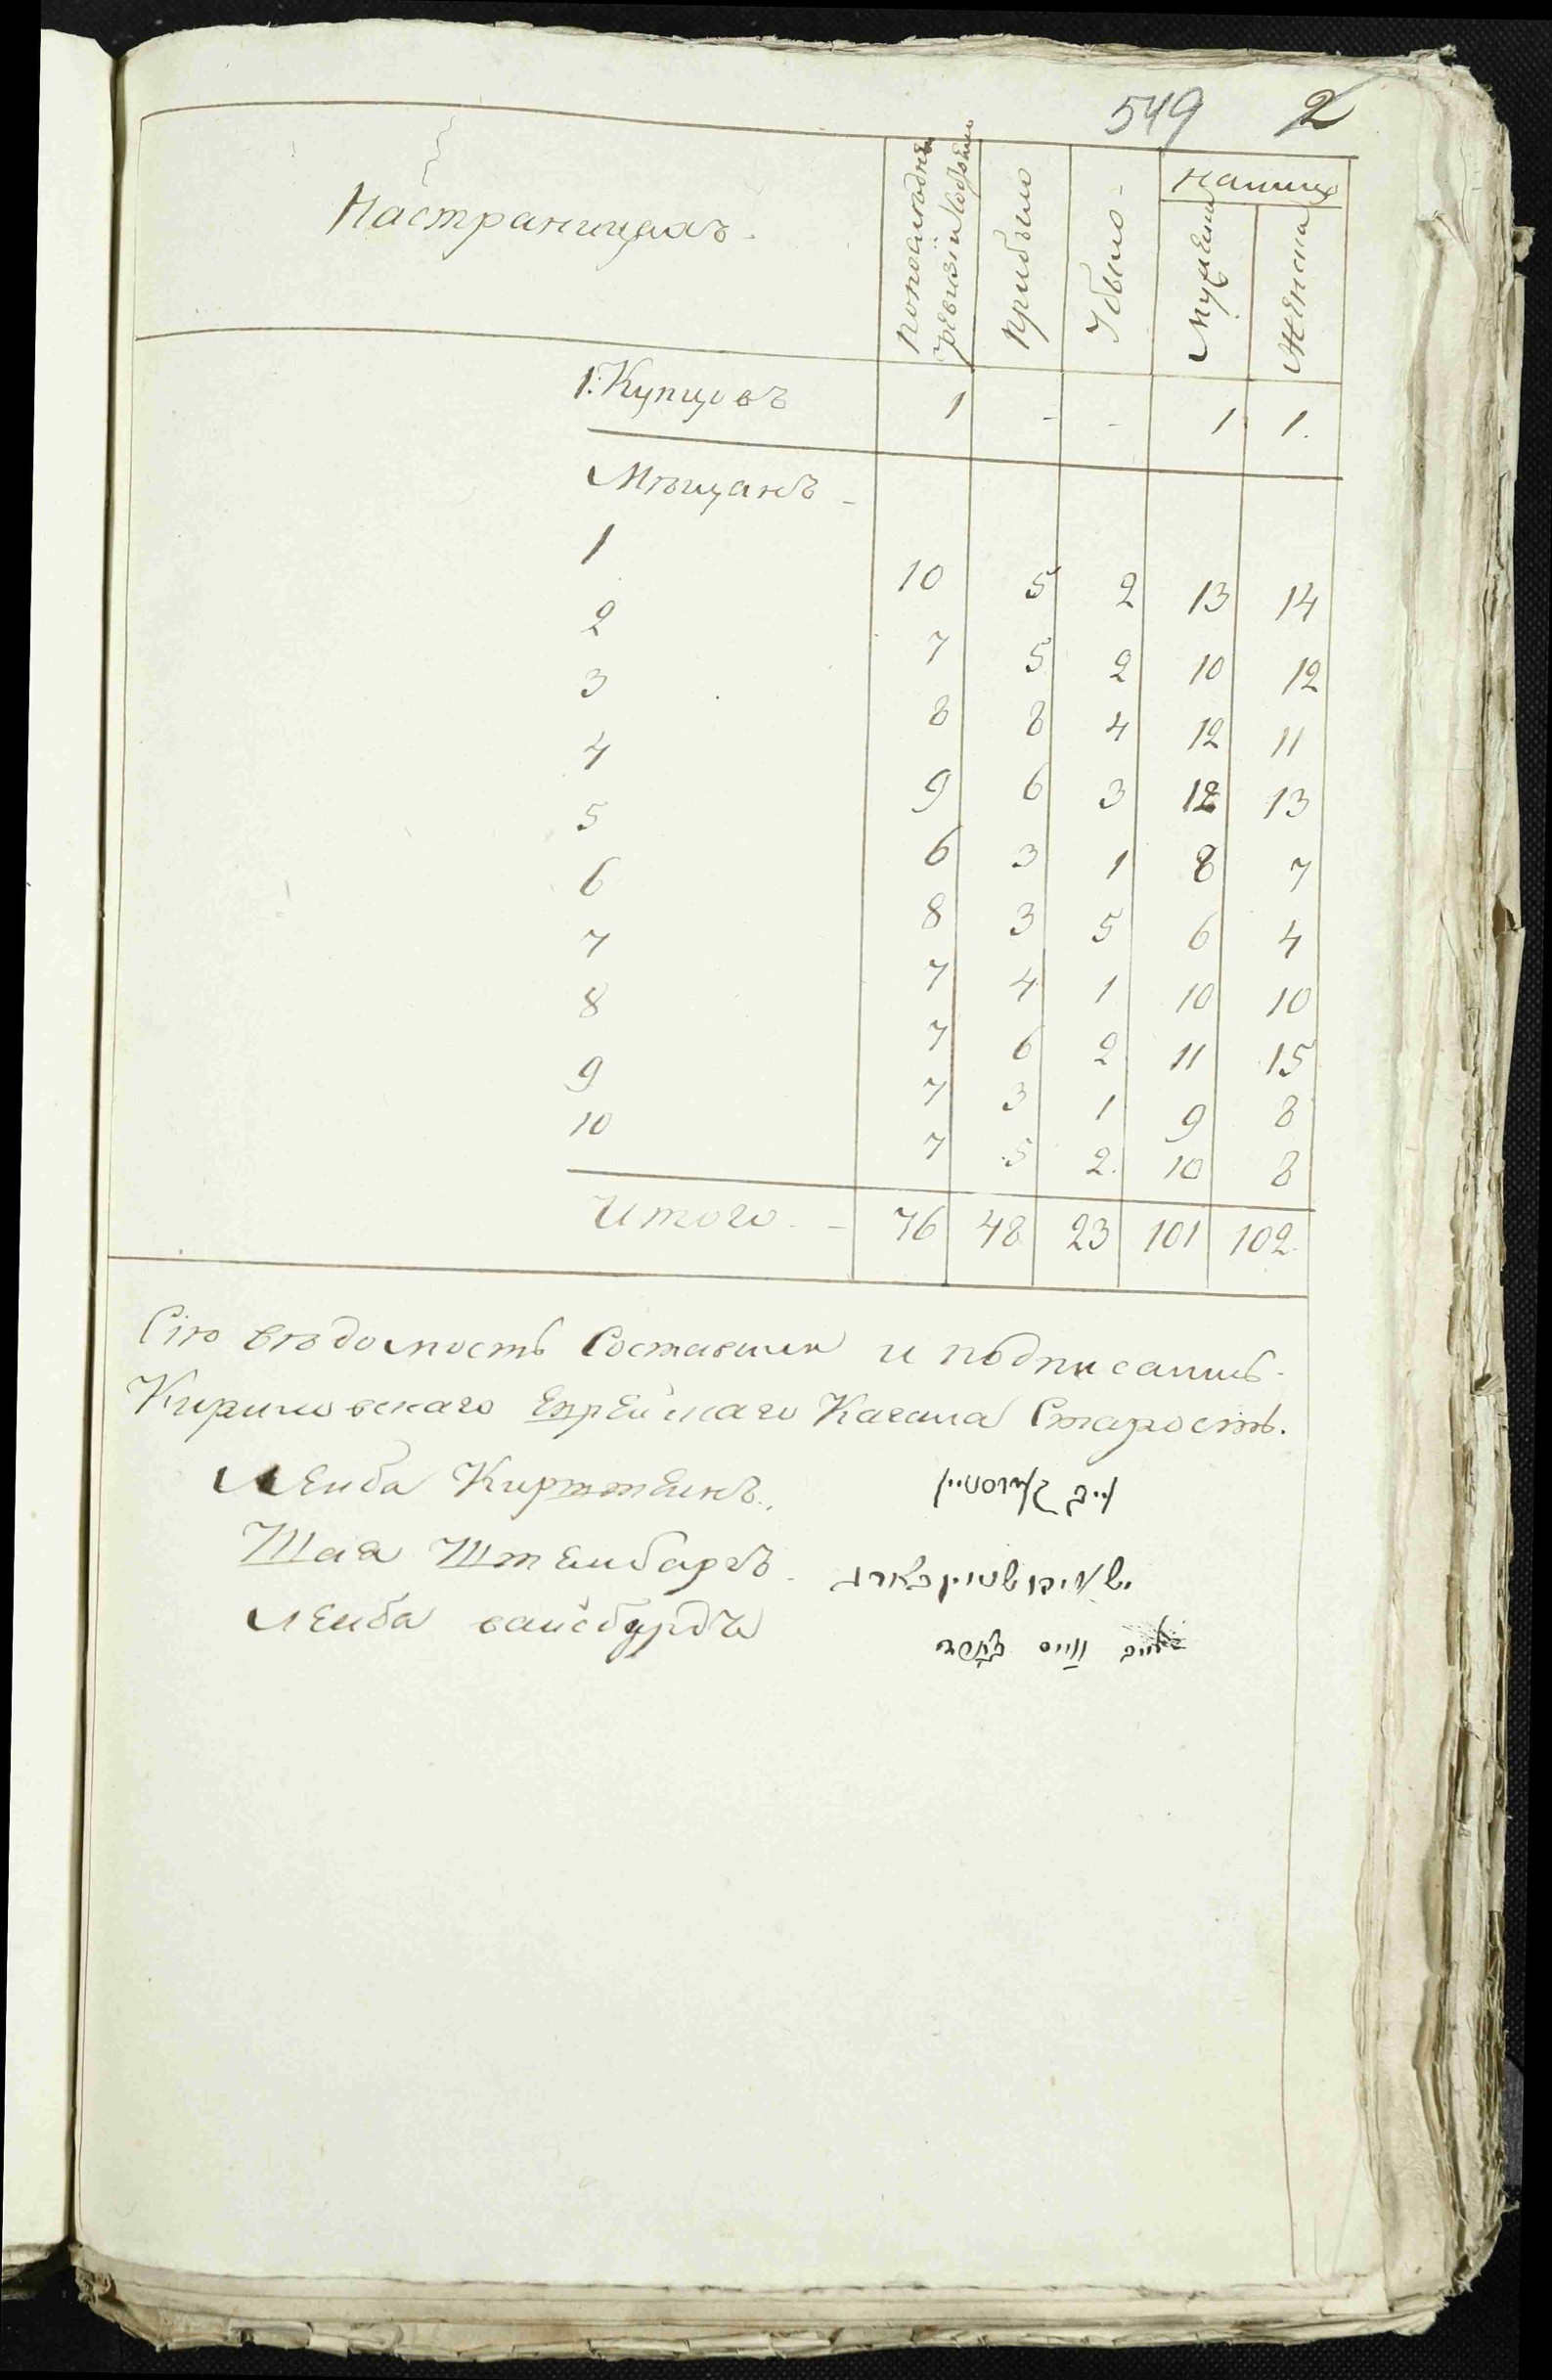 549 2
На страницахъ
По последней ревизіи состояло
Прибыло
Убыло
Налицо
Мужеска
Женска
1. Купцовъ 1 - - 1 1.
Мѣщанъ
1 10 5 2 13 14
2 7 5 2 10 12
3 8 8 4 12 11
4 9 6 3 12 13
5 6 3 1 8 7
6 8 3 5 6 4
7 7 4 1 10 10
8 7 6 2 11 15
9 7 3 1 9 8
10 7 5 2. 10 8
Итого 76 48 23 101 102
Сію вѣдомость Составили и подписались
Еврейскаго Кагала Старосты.
Лейба
Шая Штейнбаргъ
Лейба вайсбурдъ